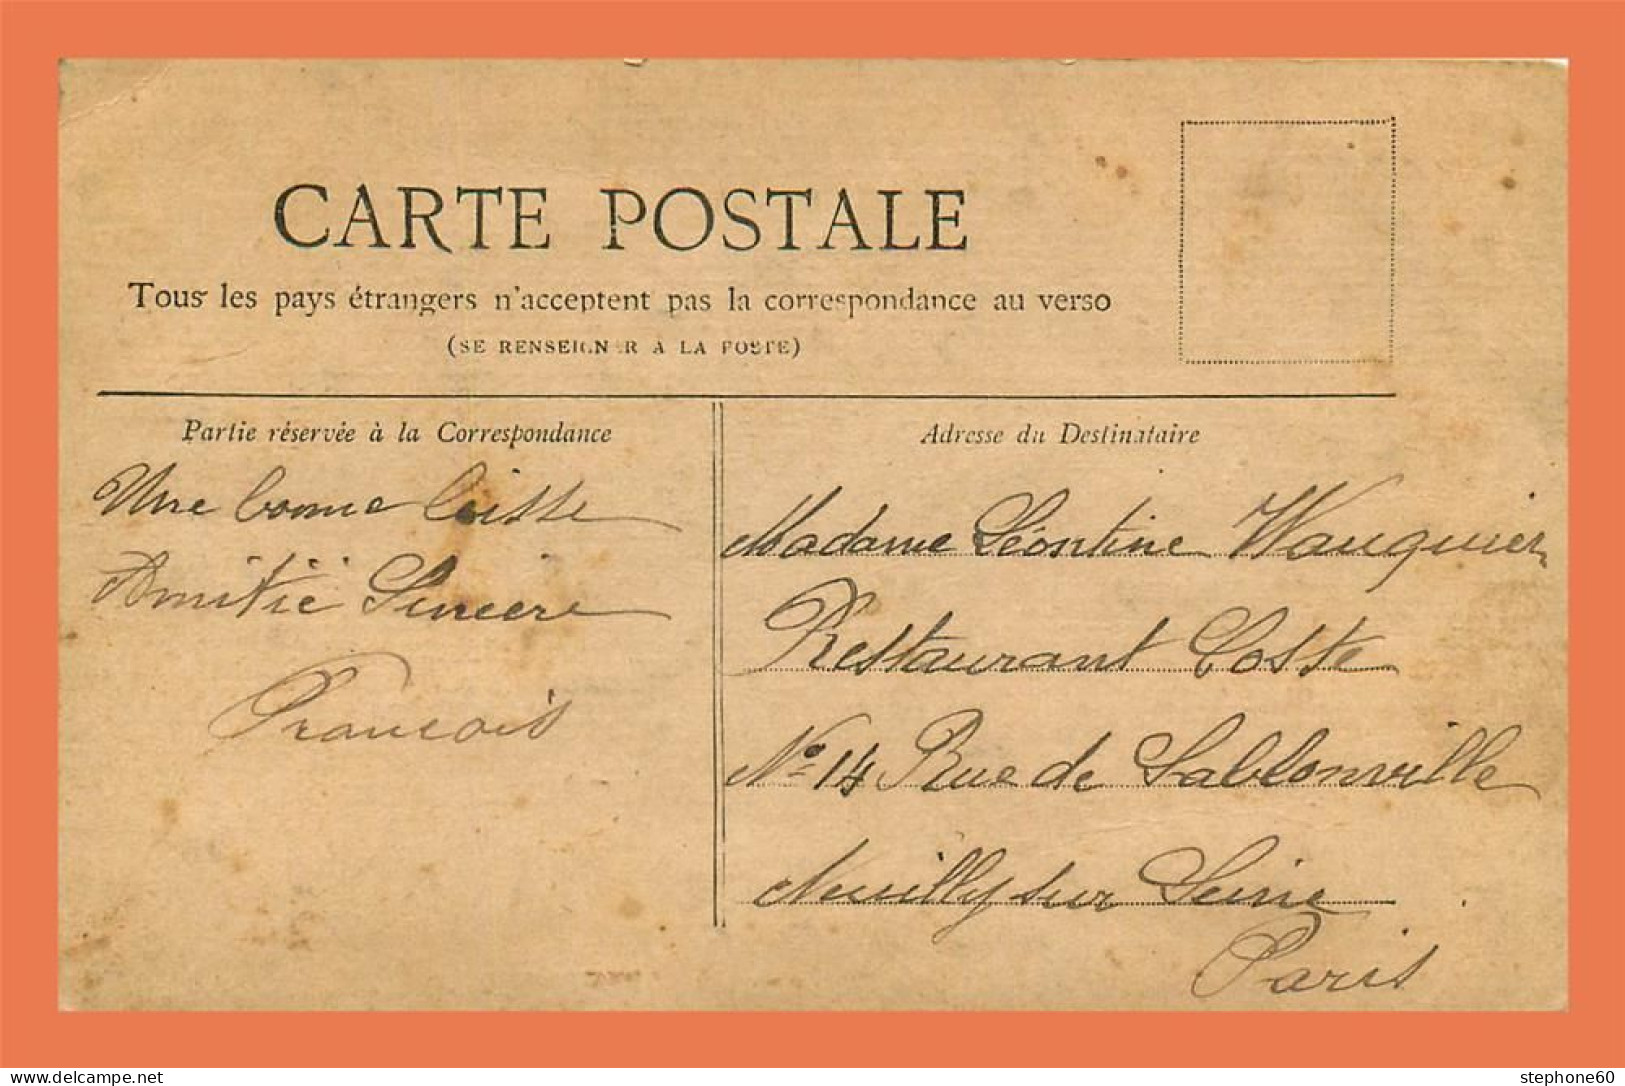 CARTE POSTALE
Tous les pays étrangers n'acceptent pas la correspondance au verso
(SE RENSEIGNER A LA POSTE)
Partie réservée à la Correspondance
Une bonne
Amitié Sincère
François
Adresse du Destinataire
Madame Léontine Wauquier
Restaurant Coste
No 14 Rue de Sablonville
Neuilly sur Seine
Paris
delcampe.net
stephone60